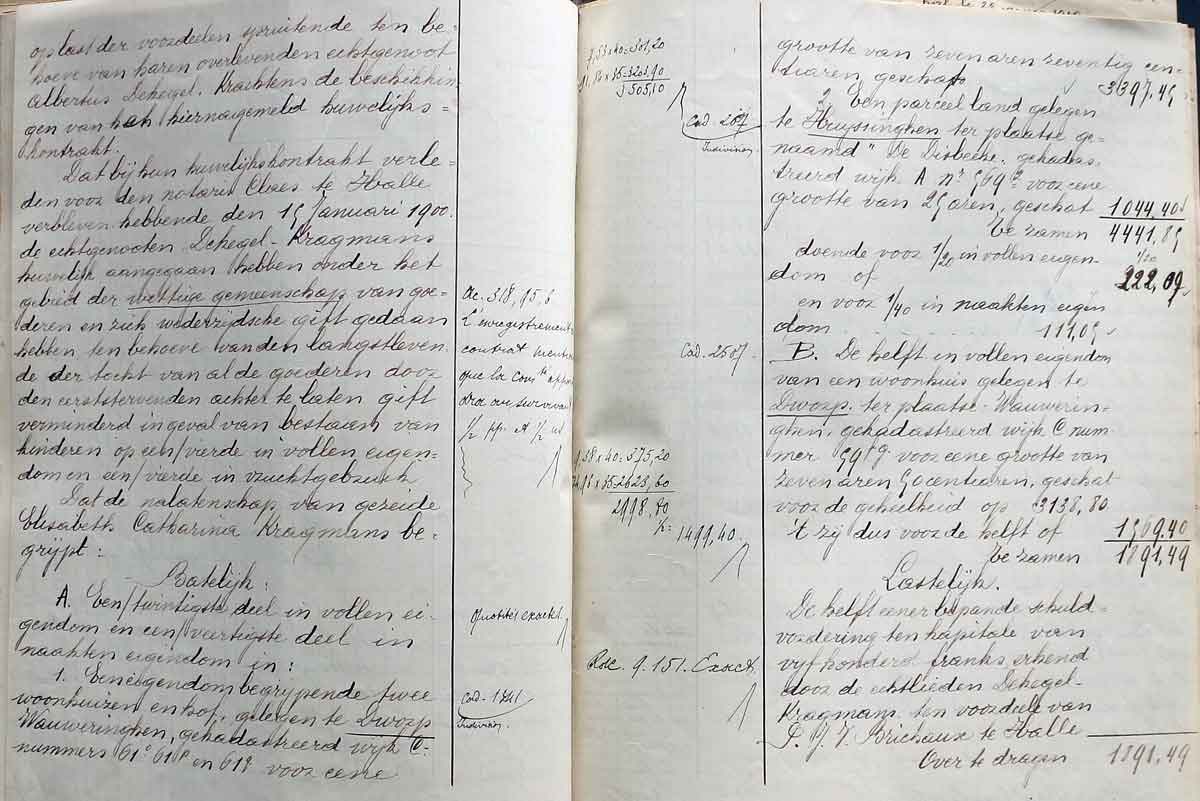 op last der voordeelen spruitende ten be-
hoeve van haren overlevenden echtgenoot
Albertus Dehegel. Krachtens de beschikkin
gen van hun hiernagemeld huwelijks-
kontrakt.
Dat bij hun huwelijkskontrakt verle-
den voor den notaris Claes te Halle
verbleven hebbende den 15 Januari 1900.
de echtgenooten Dehegel-Kragmans
huwelijk aangegaan hebben onder het
gebied der wettige gemeenschap van goe-
deren en zich wederzijdsche gift gedaan
hebben ten behoeve van den langstleven
de der tocht van al de goederen door
den eerststervenden achter te laten gift
verminderd in geval van bestaan van
kinderen op een/vierde in vollen eigen-
dom en een/vierde in vruchtgebruik
Dat de nalatenschap van gezeide
Elisabeth Catharina Kragmans be-
grijpt:
Batelijk:
A. Een/twintigste deel in vollen ei-
gendom en een/veertigste deel in
naakten eigendom in:
1. Een eigendom begrijpende twee
woonhuizen en hof, gelegen te Dworp
Wauweringhen, gekadastreerd wijk C.
nummers 61c 61p en 61q voor eene
Ac. 318, 15, 6
L'enregistrement
contrat
que la
au survivant
1/2 pp. et 1/2 us
Quotité exacte
Cad. 1241
Indivision
7.53 x 40 = 301,20
x 35 = 3203.90
3505,10
Cad. 2587
Indivision
Cad. 2587
9.38 x 40 = 375,20
x 35 2623,60
2998,80
1/2 = 1499.40
Rec. 9.151. Exact.
grootte van zeven aren zeventig cen-
tiaren geschat
3397.45
2. Een parceel land gelegen
te Huyssinghen ter plaatse ge-
naamd "De Disbeeke, gekadas-
treerd wijk A nr 569 voor eene
grootte van 25 aren, geschat 1044,40
te zamen 4441,85
doende voor 1/20 in vollen eigen- 1/20
dom of 222,09
en voor 1/40 in naakten eigen
dom 111,05
B. De helft in vollen eigendom
van een woonhuis gelegen te
Dworp. ter plaatse Wauwerin-
ghen, gekadastreerd wijk C num-
mer 59 g voor eene grootte van
zeven aren 50 centiaren, geschat
voor de geheelheid op 3138,80
't zij dus voor de helft of 1569.40
te zamen 1891,49
Lastelijk.
De helft eener bepande schuld-
vordering ten kapitale van
vijf honderd franks, erkend
door de echtlieden Dehegel-
Kragmans ten voordeele van
P. J. V. Brichaux te Halle
Over te dragen 1891.49